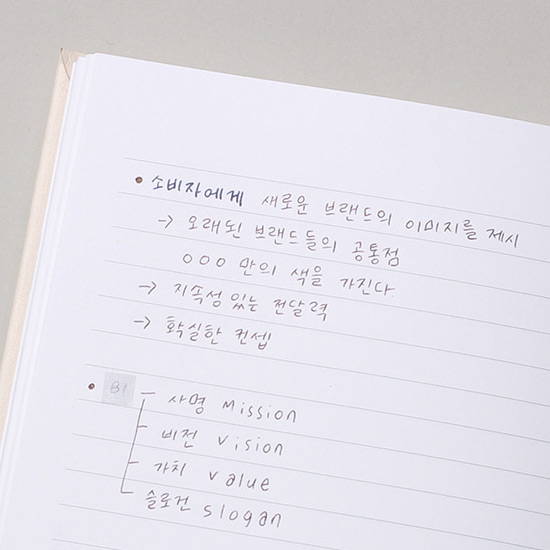 • 소비자에게 새로운 브랜드의 이미지를 제시
→ 오래된 브랜드들의 공통점
○○○ 만의 색을 가진다.
→ 지속성있는 전달력
→ 확실한 컨셉
• BI - 사명 Mission
- 비전 Vision
- 가치 value
슬로건 slogan